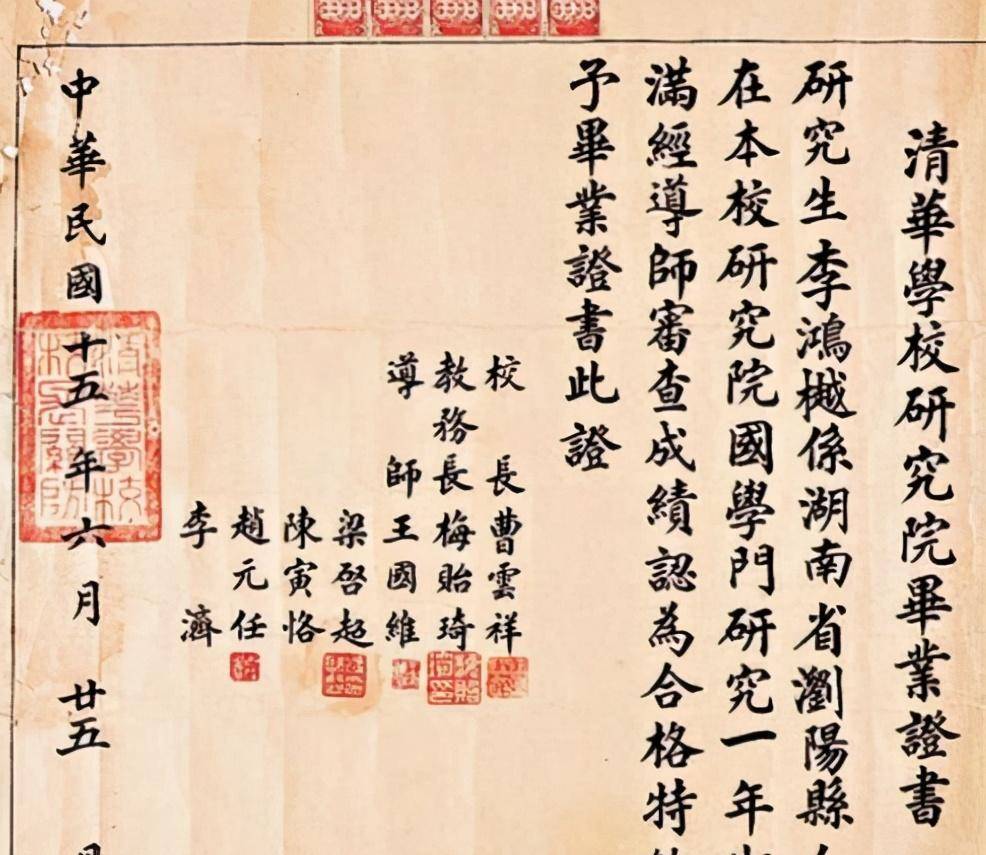 清華學校研究院畢業證書
研究生李鴻樾係湖南省瀏陽縣
在本校研究院國學門研究一年
滿經導師審查成績認為合格特
予畢業證書此證
校長曹雲祥
教務長梅貽琦
導師王國維
梁啓超
陳寅恪
趙元任
李濟
中華民國十五年六月廿五